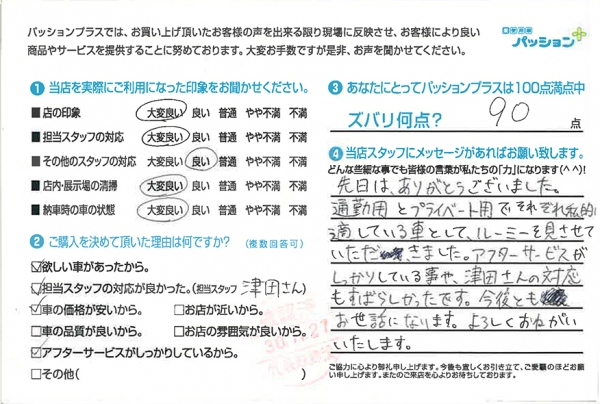 パッションプラスでは、お買い上げ頂いたお客様の声を出来る限り現場に反映させ、お客様により良い
商品やサービスを提供することに努めております。大変お手数ですが是非、お声を聞かせてください。
パッション
1 当店を実際にご利用になった印象をお聞かせください。
■店の印象 大変良い 良い 普通 やや不満 不満
■担当スタッフの対応 大変良い 良い 普通 やや不満 不満
■その他のスタッフの対応 大変良い 良い 普通 やや不満 不満
■店内・展示場の清掃 大変良い 良い 普通 やや不満 不満
■納車時の車の状態 大変良い 良い 普通 やや不満 不満
2 ご購入を決めて頂いた理由は何ですか?(複数回答可)
☑欲しい車があったから。
☑担当スタッフの対応が良かった。(担当スタッフ 津田さん)
☑車の価格が安いから。 □お店が近いから。
□車の品質が良いから。 □お店の雰囲気が良いから。
☑アフターサービスがしっかりしているから。
□その他( )
3 あなたにとってパッションプラスは100点満点中
ズバリ何点? 90 点
4 当店スタッフにメッセージがあればお願い致します。
どんな些細な事でも皆様の言葉が私たちの「力」になります(^^)!
先日は、ありがとうございました。
通勤用とプライベート用でそれぞれ私的に
適している車として、ルーミーを見させて
いただきました。アフターサービスが
しっかりしている事や、津田さんの対応
もすばらしかったです。今後とも
お世話になります。よろしくおねがい
いたします。
ご協力に心より御礼申し上げます。今後も宜しくお引き立て、ご愛顧のほどお願
い申し上げます。またのご来店を心よりお待ちしております。